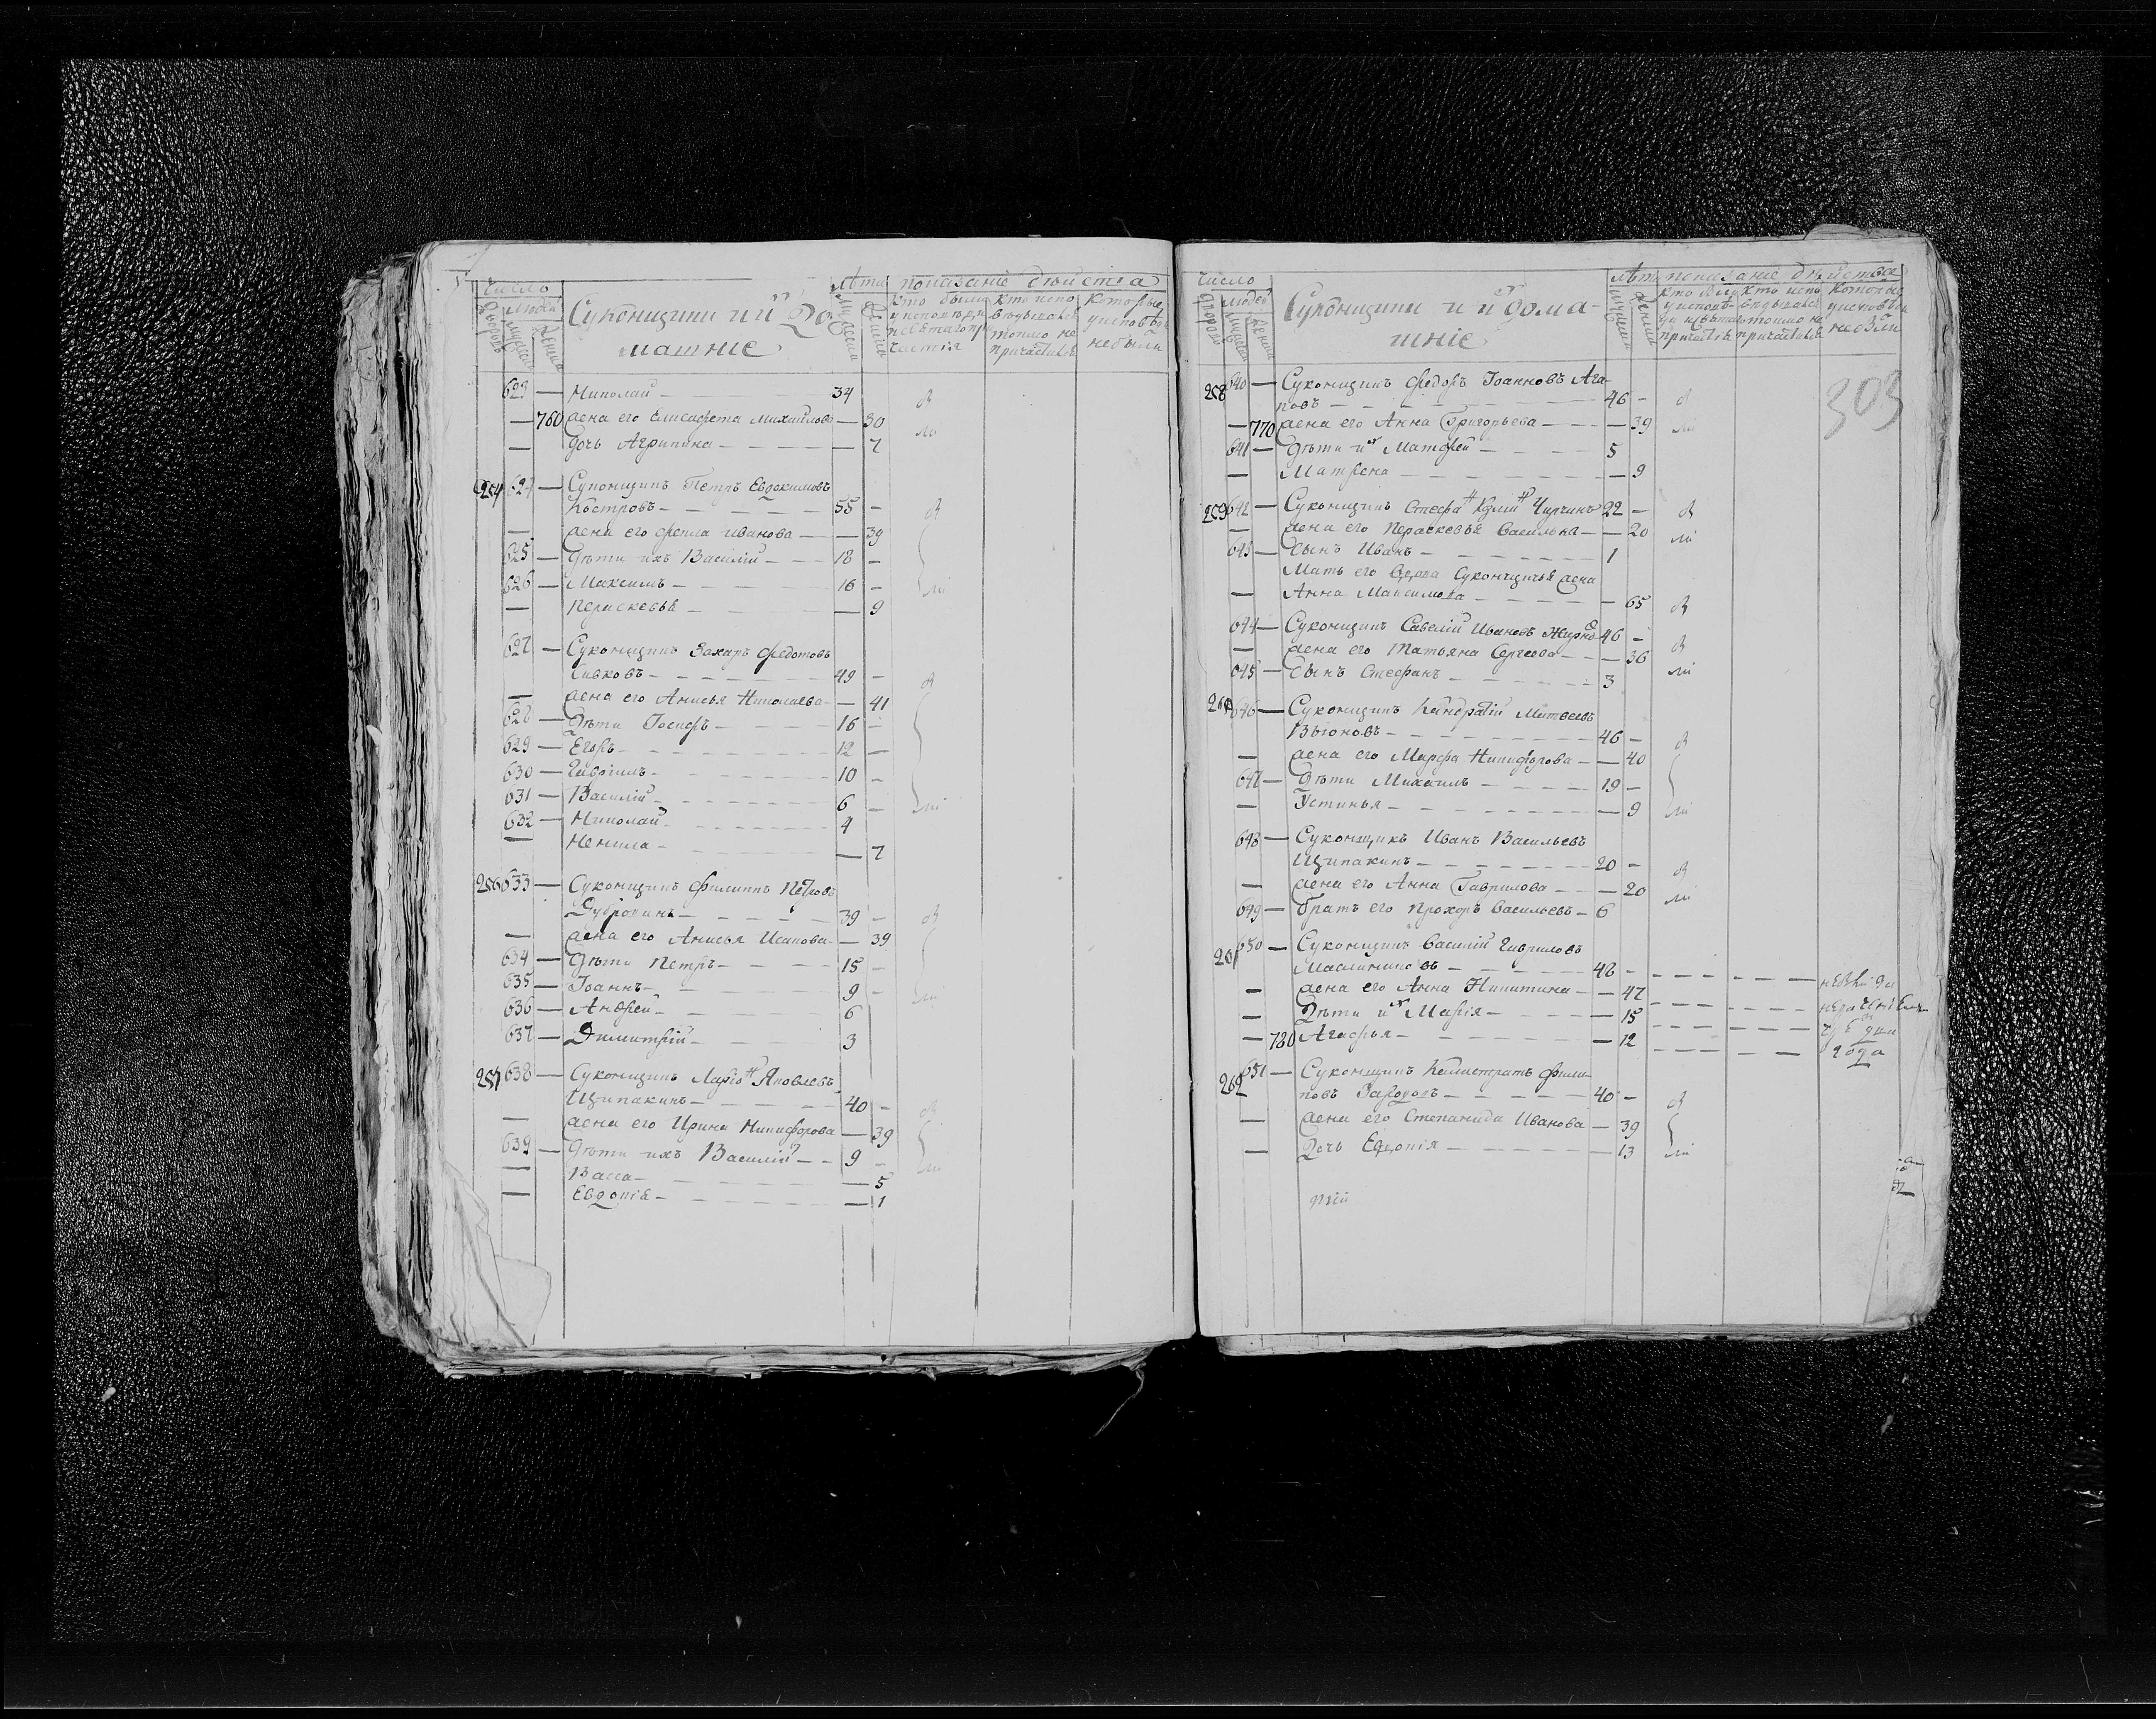 Число
Людей
Дворовъ
Мужеска
Женска
Суконщики и ихъ до-
машніе
Лѣта
Мужеска
Женска
показаніе дѣйства
Кто были
у исповѣди
и святаго при-
частія
Кто испо-
вѣдывался
токмо не
причастился
Которые
у исповѣди
не были
623 — Николай — 34
— 760 жена его Елисафета Михайлова — 30
— дочь Агрипина — — 7
254 624 — Суконщикъ Петръ Евдокимовъ
Костровъ — 55 —
— жена его Фекла Иванова — — 39
625 — Дѣти ихъ Василій — 18 —
626 — Максимъ — 16 —
— Параскевья — — 9
627 — Суконщикъ Захаръ Федотовъ
Сивковъ — 49 —
— жена его Анисья Николаева — — 41
628 — Дѣти Іосифъ — 16 —
629 — Егоръ — 12 —
630 — Гавріилъ — 10 —
631 — Василій — 6 —
632 — Николай — 4
— Ненила — — 7
256 633 — Суконщикъ Филиппъ Петровъ
Дубровинъ — 39 —
— жена его Анисья Исакова — — 39
634 — Дѣти Петръ — 15 —
635 — Іоаннъ — 9 —
636 — Андрей — 6
637 — Димитрій — 3
257 638 — Суконщикъ Ларіонъ Яковлевъ
Щипакинъ — 40 —
— жена его Ирина Никифорова — — 39
639 — Дѣти ихъ Василій — 9 —
— Васса — — 5
— Евдокія — — 1
Число
Людей
Дворовъ
Мужеска
Женска
Суконщики и ихъ дома-
шніе
Лѣта
Мужеска
Женска
показаніе дѣйства
Кто были
у исповѣ-
ди и святаго
причастія
Кто испо-
вѣдывался
токмо не
причастился
Которые
у исповѣди
не были
303
258 640 — Суконщикъ Федоръ Іоанновъ Ага-
повъ — 46 —
— 770 жена его Анна Григорьева — — 39
641 — Дѣти ихъ Матфей — 5
— Матрена — — 9
259 642 — Суконщикъ Стефанъ Чирчинъ 22 —
— жена его Параскевья Васильва — — 20
643 — Сынъ Иванъ — 1
Мать его Вдова Суконщичья жена
— Анна Максимова — — 65
644 — Суконщикъ Савелій Ивановъ Жирно 46 —
— жена его Татьяна Сергеева — — 36
645 — Сынъ Стефанъ — 3
260 646 — Суконщикъ Кандратій Матвеевъ
Выгоновъ — 46 —
— жена его Марфа Никифорова — — 40
647 — Дѣти Михаилъ — 19 —
— Устинья — — 9
648 — Суконщикъ Иванъ Васильевъ
Щипакинъ — 20 —
— жена его Анна Гаврилова — — 20
649 — братъ его Прохоръ Васильевъ — 6
261 650 — Суконщикъ Василій Гавриловъ
Маслениковъ — 48 —
— жена его Анна Никитина — — 47
— Дѣти ихъ Марія — — 15
— 780 Агафья — — 12
года
262 651 — Суконщикъ Калистратъ Фили-
повъ — 40 —
— жена его Степанида Иванова — 39
— Дочь Евдокія — — 13